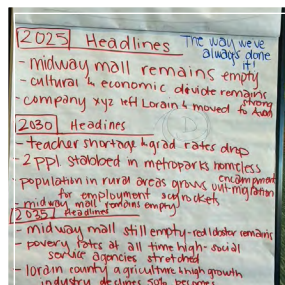 2025 Headlines
The way we've always done it
- midway mall remains empty
- cultural & economic divide remains strong
- company xyz left Lorain & moved to Avon
2030 Headines
- teacher shortage & grad rates drop
- 2 ppl stabbed in metroparks homeless encampment
- population in rural areas grows out-migration for employment skyrockets
- midway mall remains empty
2035 Headlines
- midway mall still empty - red lobster remains
- povery rates at all time high - social service agencies stretched
- lorain county agriculture & high growth
industry declines 50% becomes